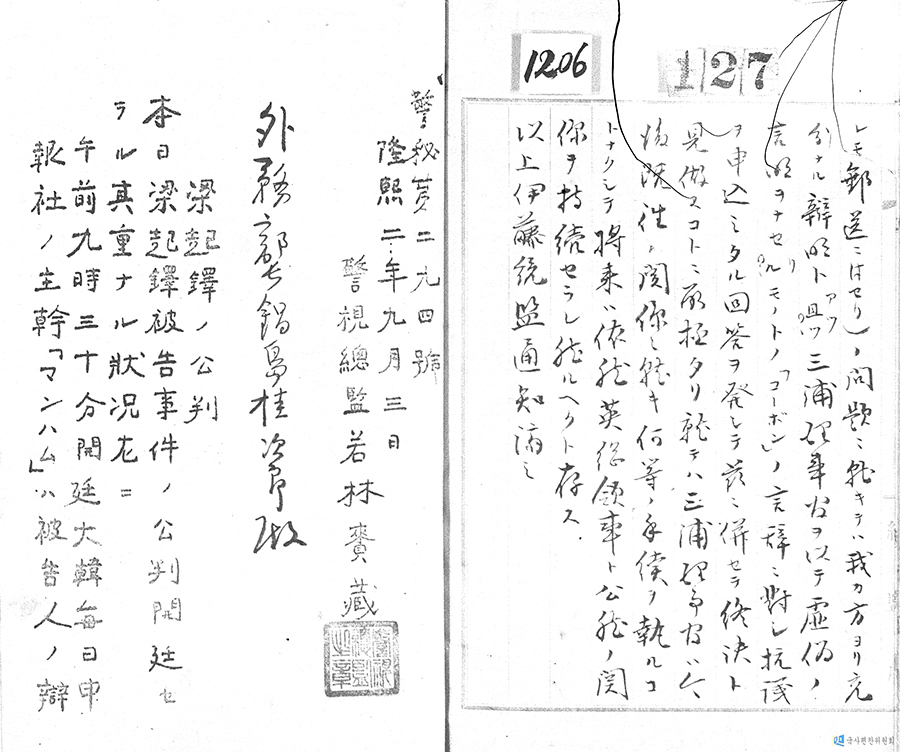 1206
127
レモ郵送ニ付セリ)ノ問題ニ就キテハ我カ方ヨリ充
分ナル辯明ト且ツ三浦理事官ヲ以テ虚偽ノ
言明ヲナセルモノトノ「コーボン」ノ言辞ニ対シ抗議
ヲ申込ミタル回答ヲ発シテ茲ニ併セテ終決ト
見做スコトニ取極タリ就テハ三浦理事官ハ今
後既往ノ関係ニ就キ何等ノ手続ヲ執ルコ
トナクシテ将来ハ依然英総領事ト公然ノ関
係ヲ持続セラレ然ルヘクト存ス
以上伊藤統監通知済ミ
警秘第二九四號
隆熙二年九月三日
警視總監若林賚藏
外務部長鍋島桂次郎殿
梁起鐸ノ公判
本日梁起鐸被告事件ノ公判開廷セ
ラル其重ナル状況左ニ
午前九時三十分開廷大韓每日申
報社ノ主幹「マンハム」ハ被告人ノ辯
국사편찬위원회